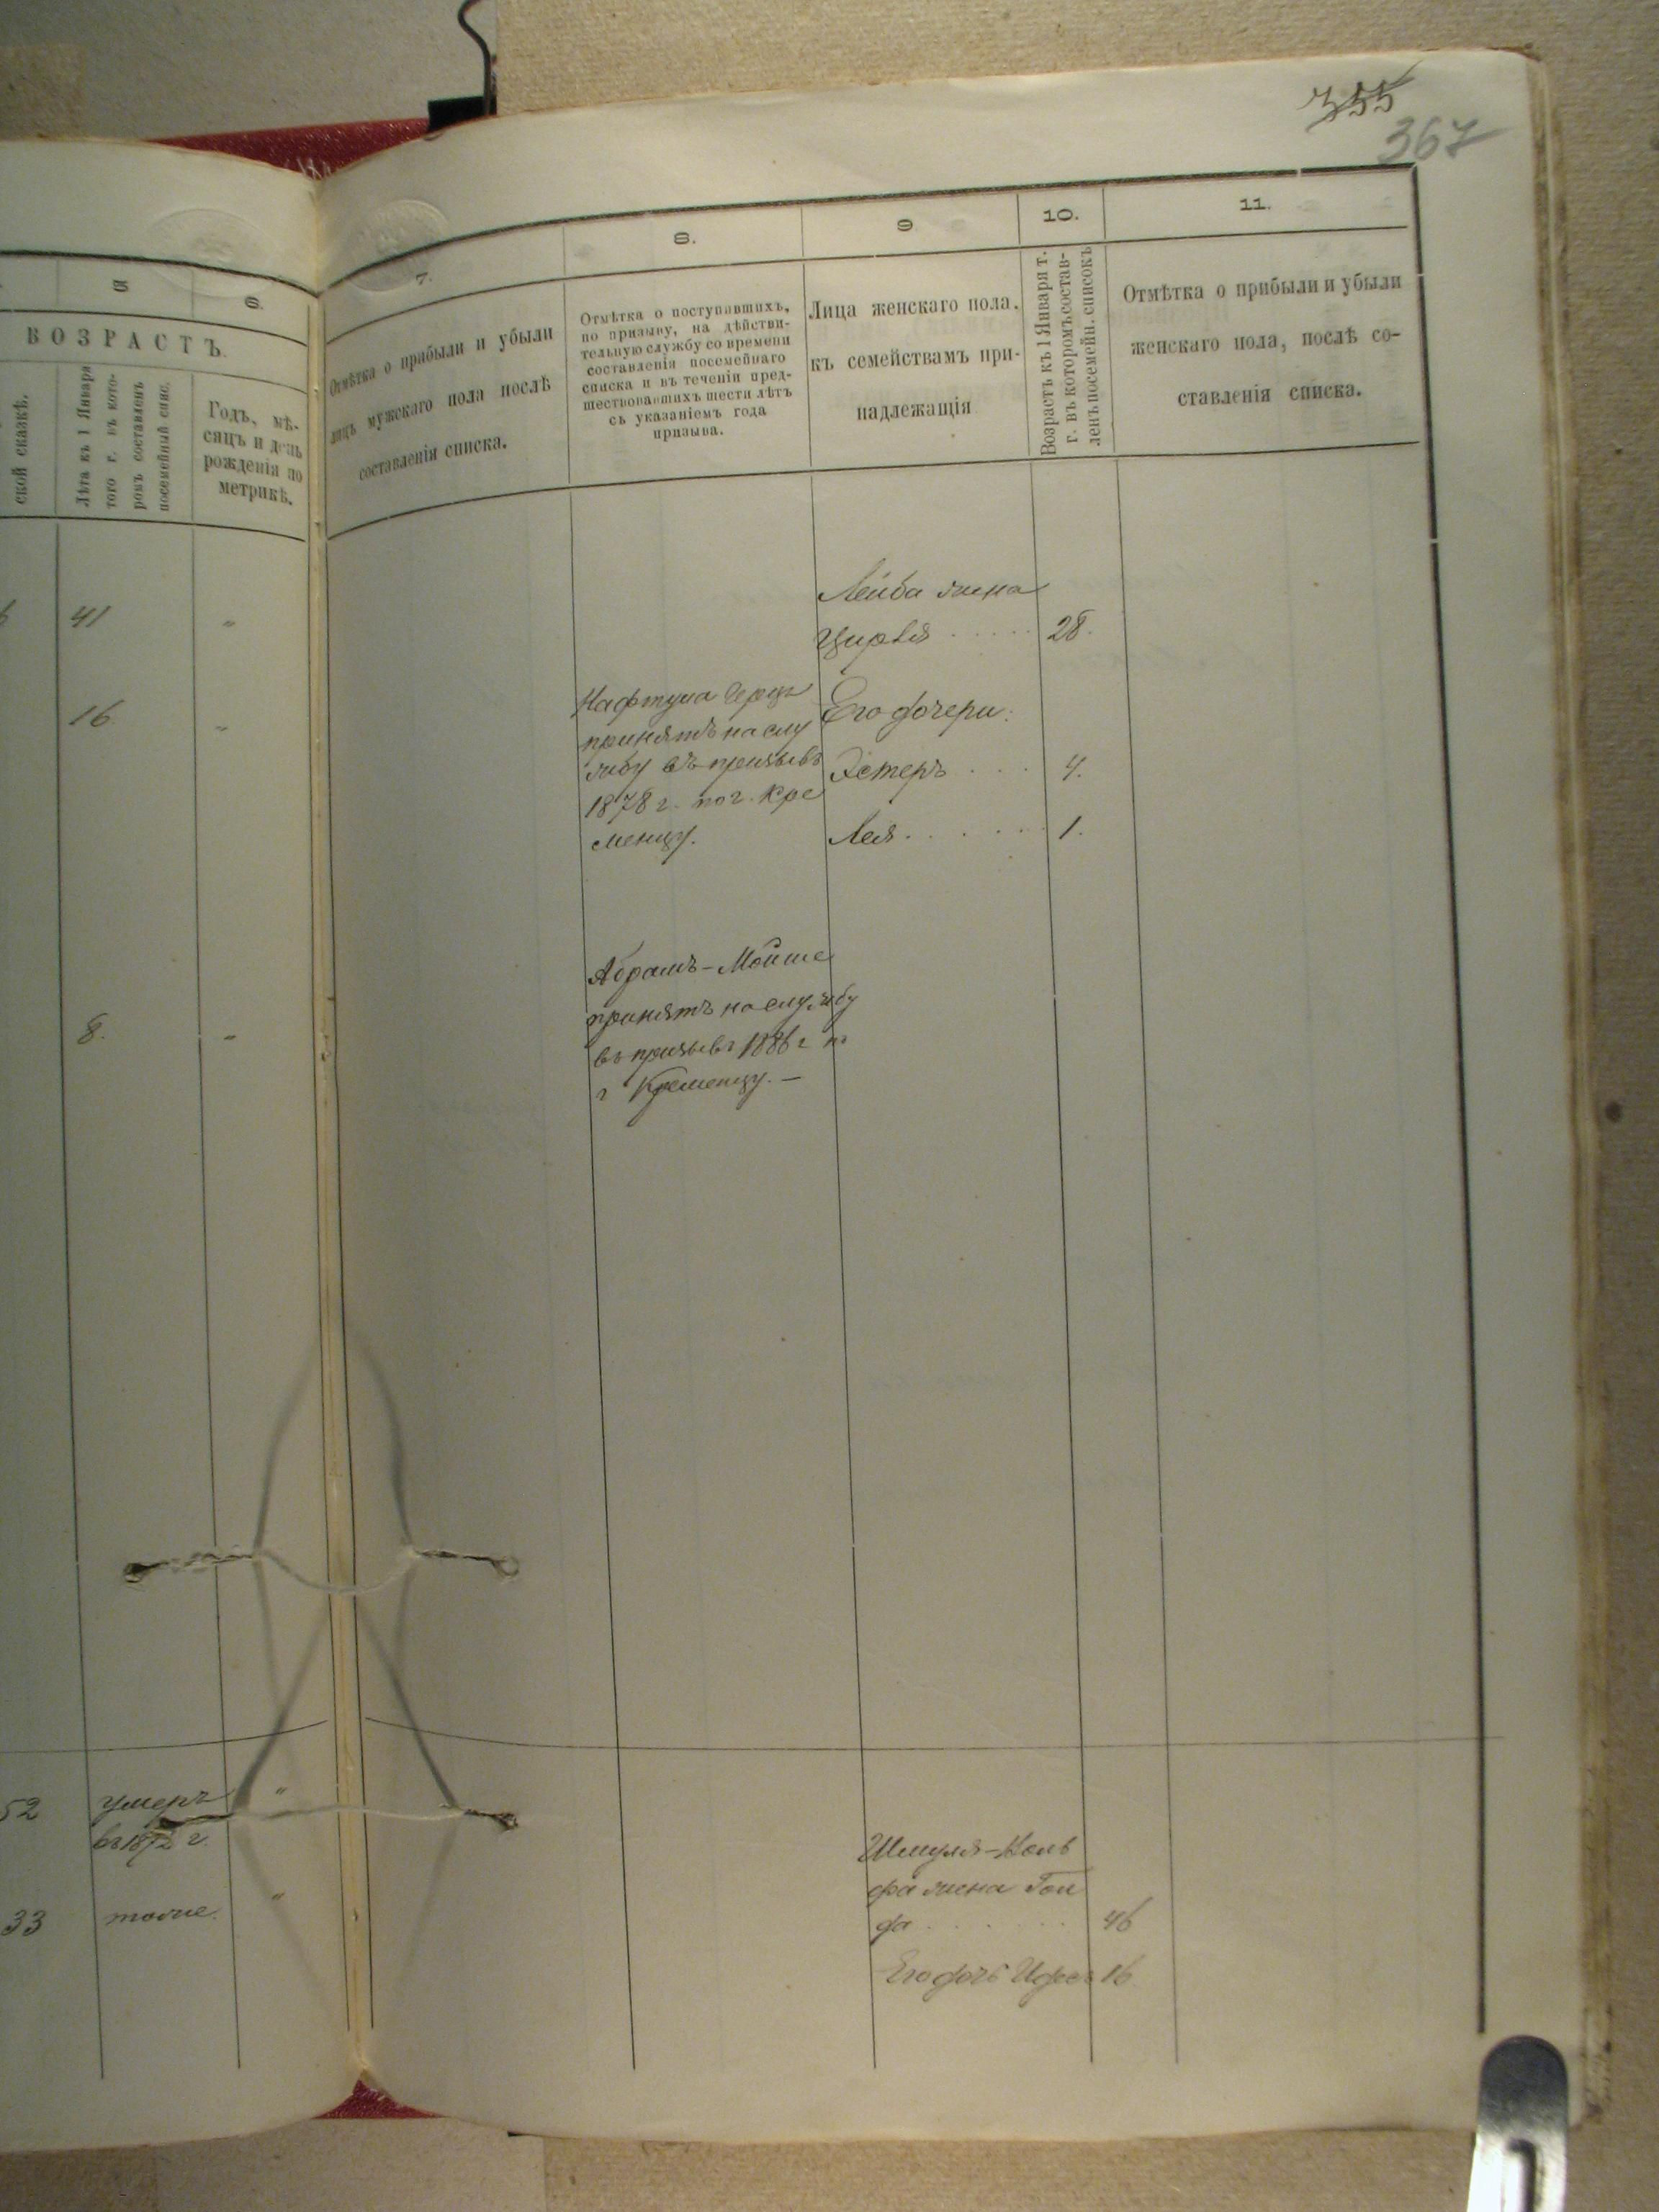 355
367
5
6.
ВОЗРАСТЪ.
ской сказкѣ.
Лѣта къ 1 Января
того г. въ кото-
ромъ составленъ
посемейный спис.
Годъ, мѣ-
сяцъ и день
рожденія по
метрикѣ.
41 "
16 "
8. "
52 умеръ "
въ 1872 г.
33 тоже. "
7.
8.
9
10.
11.
Отмѣтка о прибыли и убыли
лицъ мужскаго пола послѣ
составленія списка.
Отмѣтка о поступавшихъ,
по призыву, на дѣйстви-
тельную службу со времени
составленія посемейнаго
списка и въ теченіи пред-
шествовавшихъ шести лѣтъ
съ указаніемъ года
призыва.
Лица женскаго пола.
къ семействамъ при-
надлежащія
Возрастъ къ 1 Января т.
г. въ которомъ состав-
ленъ посемейн. списокъ
Отмѣтка о прибыли и убыли
женскаго пола, послѣ со-
ставленія списка.
Нафтула Герцъ
принятъ на слу
жбу въ призывъ
1878 г. по г. Кре
менцу.
Абрамъ-Мойше
принятъ на службу
въ призывъ 1886 г по
г Кременцу. —
Лейба жена
Цирля . . . . . 28.
Его дочери:
Эстеръ . . . 4.
Лея . . . . . . 1.
Шмуля-Воль
фа жена Гол
да . . . . . . 46
Его дочь 16